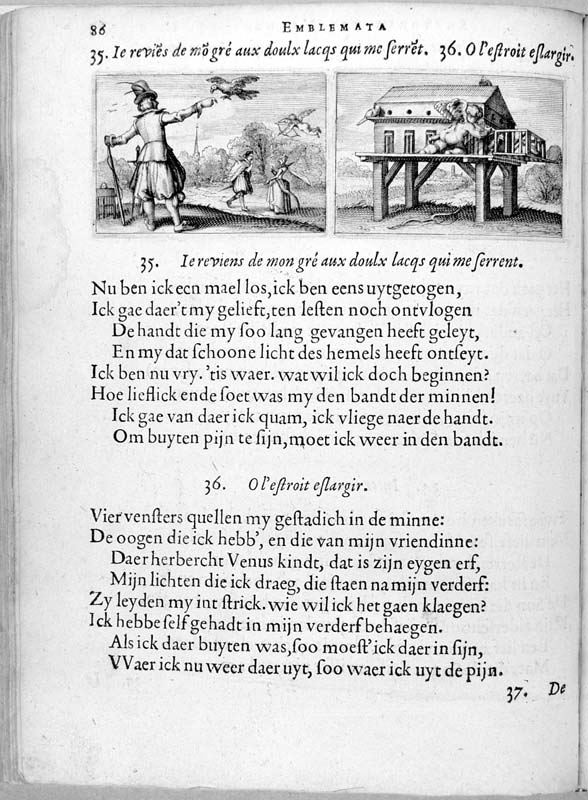 86 EMBLEMATA
35. Ie reviēs de mō gré aux doulx lacqs qui me serrēt. 36. O l'estroit eslargir.
35. Ie reviens de mon gré aux doulx lacqs qui me serrent.
Nu ben ick een mael los, ick ben eens uytgetogen,
Ick gae daer't my gelieft, ten lesten noch ontvlogen
De handt die my soo lang gevangen heeft geleyt,
En my dat schoone licht des hemels heeft ontseyt.
Ick ben nu vry. 'tis waer. wat wil ick doch beginnen?
Hoe lieflick ende soet was my den bandt der minnen!
Ick gae van daer ick quam, ick vliege naer de handt.
Om buyten pijn te sijn, moet ick weer in den bandt.
36. O l'estroit eslargir.
Vier vensters quellen my gestadich in de minne:
De oogen die ick hebb', en die van mijn vriendinne:
Daer herbercht Venus kindt, dat is zijn eygen erf,
Mijn lichten die ick draeg, die staen na mijn verderf:
Zy leyden my int strick. wie wil ick het gaen klaegen?
Ick hebbe self gehadt in mijn verderf behaegen.
Als ick daer buyten was, soo moest' ick daer in sijn,
VVaer ick nu weer daer uyt, soo waer ick uyt de pijn.
37. De